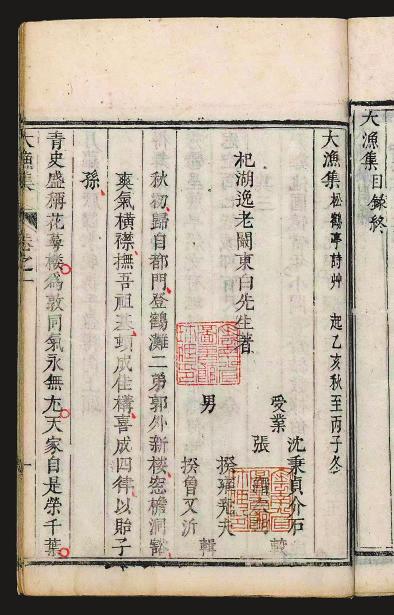 大漁集目錄終
大漁集 松鶴亭詩艸 起乙亥秋至丙子冬
杞湖逸老闞東白先生著
受業 沈秉貞介石
張
輯
男 揆
揆魯又沂
輯
秋初歸自都門登鶴灘二弟郭外新樓窓檐洞豁
爽氣橫襟撫吾祖基頓成佳構喜成四律以貽子
孫
青史盛稱花萼樓為敦同氣永無尤天家自是榮千葉
大漁集 卷之一
一